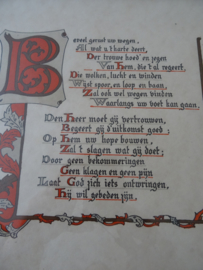 Beveel gerust uw wegen,
Al wat u 't harte deert,
Der trouwe hoed en zegen
Van Hem, die 't al regeert.
Die wolken, lucht en winden
Wijst spoor, en loop en baan,
Zal ook wel wegen vinden
Waarlangs uw voet kan gaan.
Den Heer moet gij vertrouwen,
Begeert gij d'uitkomst goed
Op Hem uw hope bouwen,
Zal 't slagen wat gij doet.
Door geen bekommeringen
Geen klagen en geen pijn
Laat God zich iets ontwringen,
Hij wil gebeden zijn.